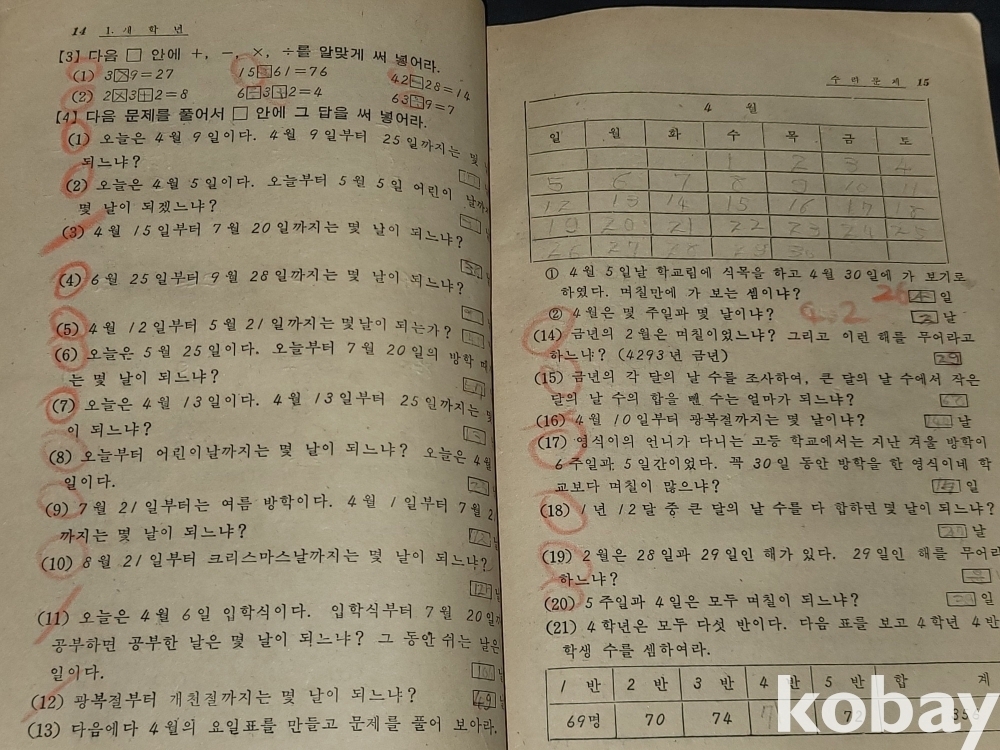 14 1. 새 학 년
[3] 다음 □ 안에 +, −, ×, ÷를 알맞게 써 넣어라.
(1) 3×9=27 15 61=76 42−28=14
(2) 2×3+2=8 6÷3+2=4 63÷9=7
[4] 다음 문제를 풀어서 □ 안에 그 답을 써 넣어라.
(1) 오늘은 4월 9일이다. 4월 9일부터 25일까지는 몇
되느냐?
(2) 오늘은 4월 5일이다. 오늘부터 5월 5일 어린이 날까지
몇 날이 되겠느냐?
(3) 4월 15일부터 7월 20일까지는 몇 날이 되느냐?
(4) 6월 25일부터 9월 28일까지는 몇 날이 되느냐?
(5) 4월 12일부터 5월 21일까지는 몇날이 되는가?
(6) 오늘은 5월 25일이다. 오늘부터 7월 20일의 방학
는 몇 날이 되느냐?
(7) 오늘은 4월 13일이다. 4월 13일부터 25일까지는 몇
이 되느냐?
(8) 오늘부터 어린이날까지는 몇 날이 되느냐? 오늘은 4월
일이다.
(9) 7월 21일부터는 여름 방학이다. 4월 1일부터 7월
까지는 몇 날이 되느냐?
(10) 8월 21일부터 크리스마스날까지는 몇 날이 되느냐?
(11) 오늘은 4월 6일 입학식이다. 입학식부터 7월 20일
공부하면 공부한 날은 몇 날이 되느냐? 그 동안 쉬는 날은
일이다.
(12) 광복절부터 개천절까지는 몇 날이 되느냐? 49
(13) 다음에다 4월의 요일표를 만들고 문제를 풀어 보아라.
수 랴 문 제 15
4 월
일 월 화 수 목 금 토
1 2 3 4
5 6 7 8 9 10 11
12 13 14 15 16 17 18
19 20 21 22 23 24 25
26 27 28 29 30
① 4월 5일날 학교림에 식목을 하고 4월 30일에 가 보기로
하였다. 며칠만에 가 보는 셈이냐? 26 일
② 4월은 몇 주일과 몇 날이냐? 4.2 날
(14) 금년의 2월은 며칠이었느냐? 그리고 이런 해를 무어라고
하느냐? (4293년 금년) 29
(15) 금년의 각 달의 날 수를 조사하여, 큰 달의 날 수에서 작은
달의 날 수의 합을 뺀 수는 얼마가 되느냐?
(16) 4월 10일부터 광복절까지는 몇 날이냐? 날
(17) 영식이의 언니가 다니는 고등 학교에서는 지난 겨울 방학이
6주일과 5일간이었다. 꼭 30일 동안 방학을 한 영식이네 학
교보다 며칠이 많으냐? 일
(18) 1년 12달 중 큰 달의 날 수를 다 합하면 몇 날이 되느냐?
날
(19) 2월은 28일과 29일인 해가 있다. 29일인 해를 무어라
하느냐?
(20) 5주일과 4일은 모두 며칠이 되느냐? 일
(21) 4학년은 모두 다섯 반이다. 다음 표를 보고 4학년 4반
학생 수를 셈하여라.
1 반 2 반 3 반 4 반 5 반 합 계
69명 70 74 72 356
kobay